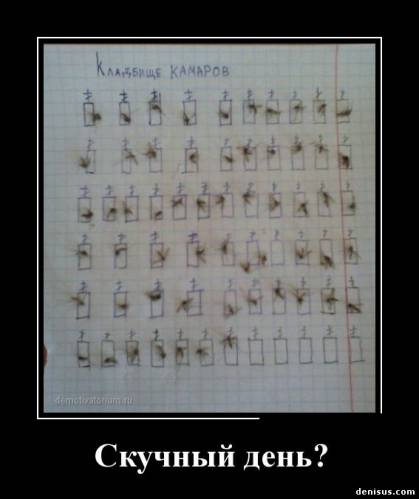 Кладбище камаров
demotivatorium.ru
Скучный день?
denisus.com